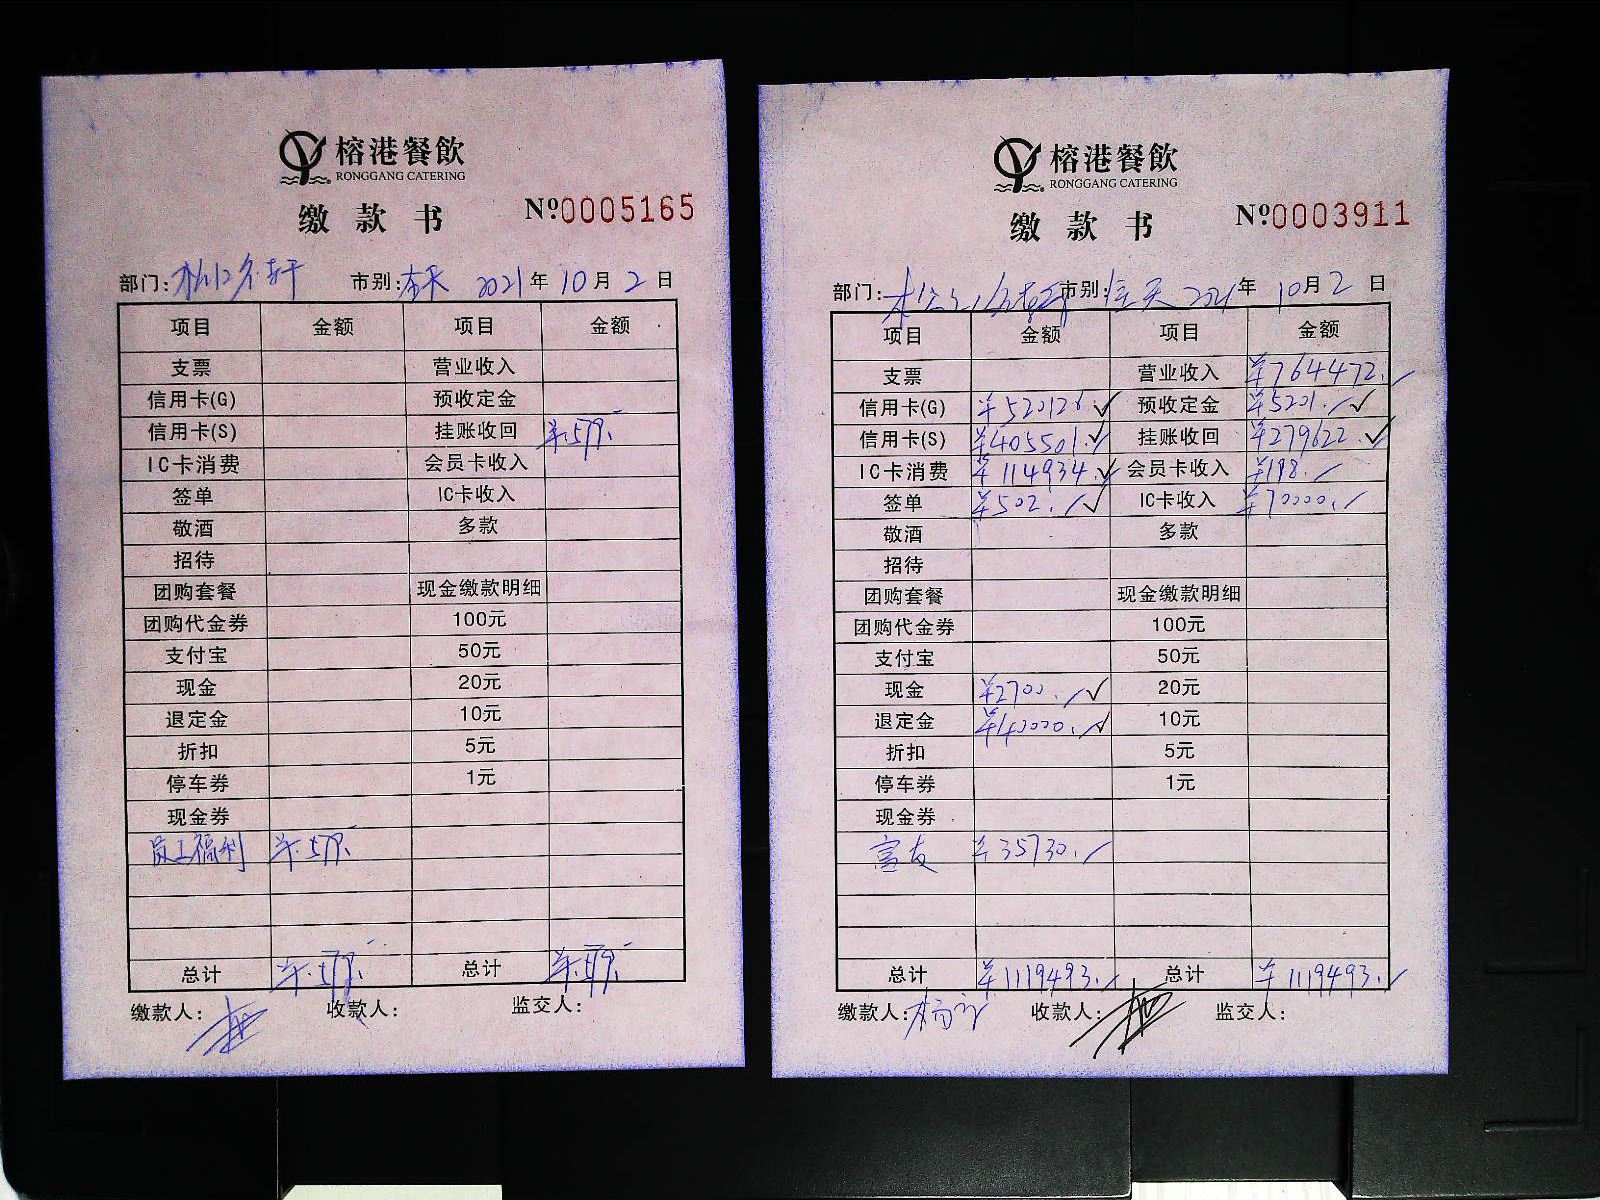 榕港餐飲
RONGGANG CATERING
缴款书 Nº0005165
部门: 市别: 2021年10月2日
项目 金额 项目 金额
支票 营业收入
信用卡(G) 预收定金
信用卡(S) 挂账收回 ¥579.
IC卡消费 会员卡收入
签单 IC卡收入
敬酒 多款
招待
团购套餐 现金缴款明细
团购代金券 100元
支付宝 50元
现金 20元
退定金 10元
折扣 5元
停车券 1元
现金券
员工福利 ¥579.
总计 ¥579. 总计 ¥579.
缴款人: 收款人: 监交人:
榕港餐飲
RONGGANG CATERING
缴款书 Nº0003911
部门: 市别:全天 2021年10月2日
项目 金额 项目 金额
支票 营业收入 ¥764472.
信用卡(G) ¥520126. 预收定金 ¥5201.
信用卡(S) ¥405501. 挂账收回 ¥279622.
IC卡消费 ¥114934. 会员卡收入 ¥198.
签单 ¥502. IC卡收入 ¥70000.
敬酒 多款
招待
团购套餐 现金缴款明细
团购代金券 100元
支付宝 50元
现金 ¥2700. 20元
退定金 ¥40000. 10元
折扣 5元
停车券 1元
现金券
富友 ¥35730.
总计 ¥1119493. 总计 ¥1119493.
缴款人: 收款人: 监交人: